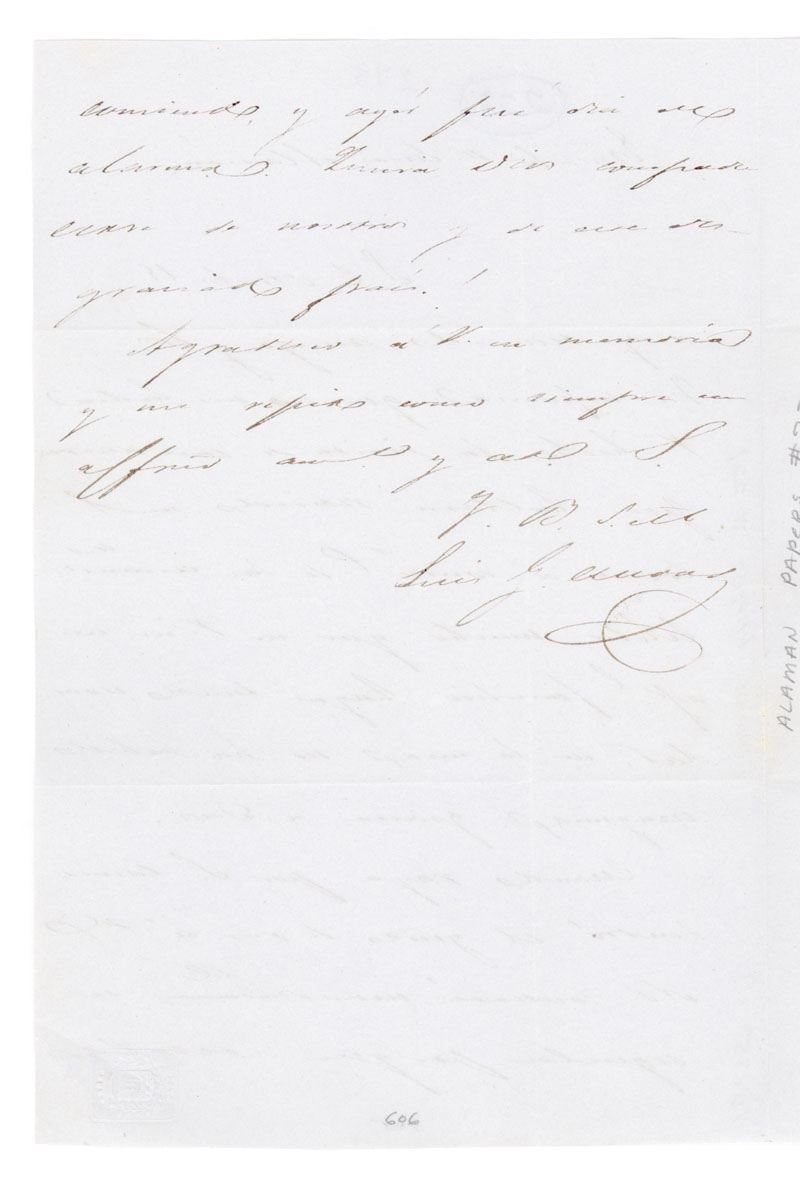 comiendo, y aquí fue dia de
alarma. Quiera Dios compade
cerse de nosotros y de este des-
graciado pais.!
Agradesco á V. su memoria
y me repito como siempre su
affmo am.º y att. S.
Q. B. S. M.
Luis G.
ALAMAN PAPERS
606